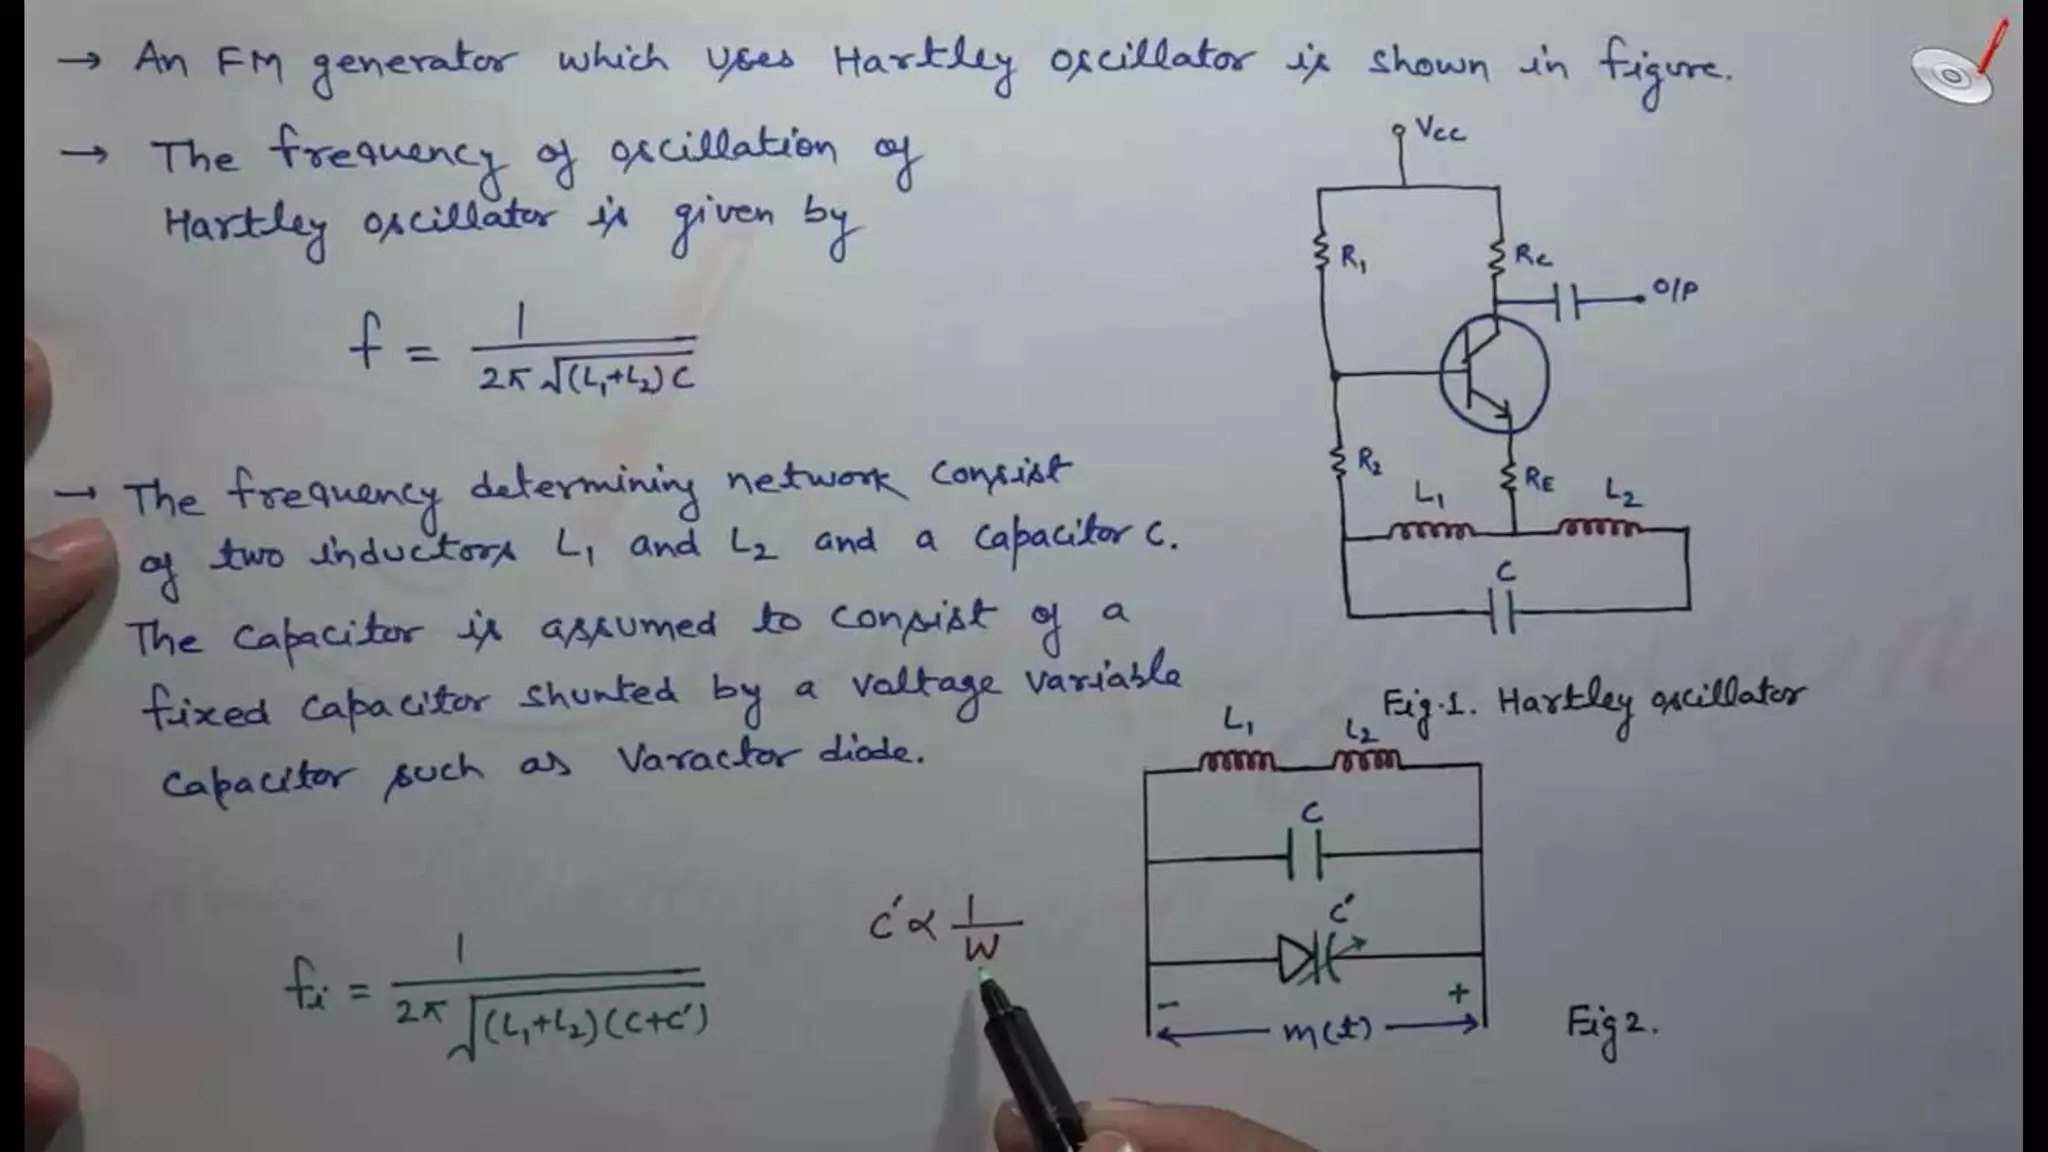 → An FM generator which uses Hartley oscillator is shown in figure.
→ The frequency of oscillation of
Hartley oscillator is given by
f = 1 / 2π √(L₁+L₂) C
→ The frequency determining network consist
of two inductors L₁ and L₂ and a capacitor C.
The capacitor is assumed to consist of a
fixed capacitor shunted by a voltage variable
capacitor such as Varactor diode.
fi = 1 / 2π √(L₁+L₂)(C+C')
C' ∝ 1 / W
Vcc
R₁
Rc
O/P
R₂
RE
L₁
L₂
C
Fig.1. Hartley oscillator
L₁
L₂
C
C'
- +
m(t)
Fig 2.